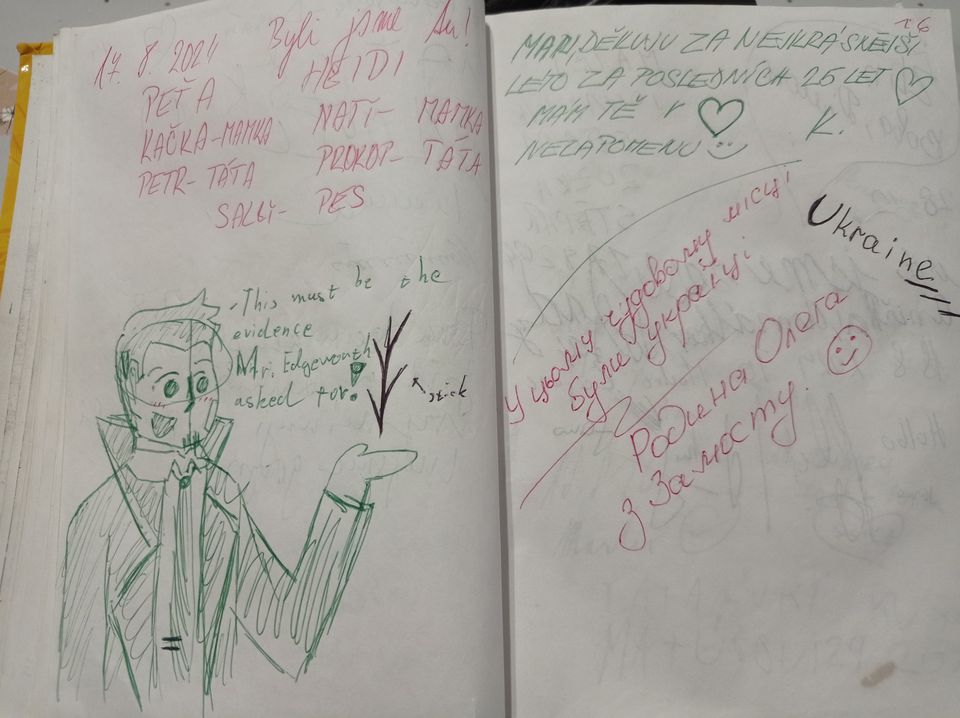 17. 8. 2021 Byli jsme tu!
PEŤA HEIDI
KAČKA-MAMKA NATY- MAMKA
PETR-TÁTA PROKOP- TÁTA
PES
-This must be the
evidence
Mr. Edgeworth
asked for!
stick
MARI, DĚKUJU ZA NEJKRÁSNĚJŠÍ
LETO ZA POSLEDNÍCH 26 LET ♡
MÁM TĚ V ♡ K.
NEZAPOMENU
Ukraine
У цьому чудовому місці
були українці.
Родина Олега
з Замосту.